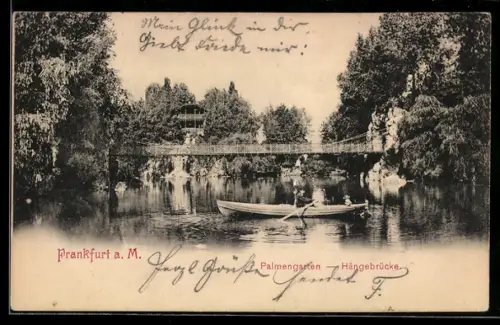 Mein Glück in der
mir:
Frankfurt a. M.
Palmengarten — Hängebrücke.
Herzl Grüße
sendet F.